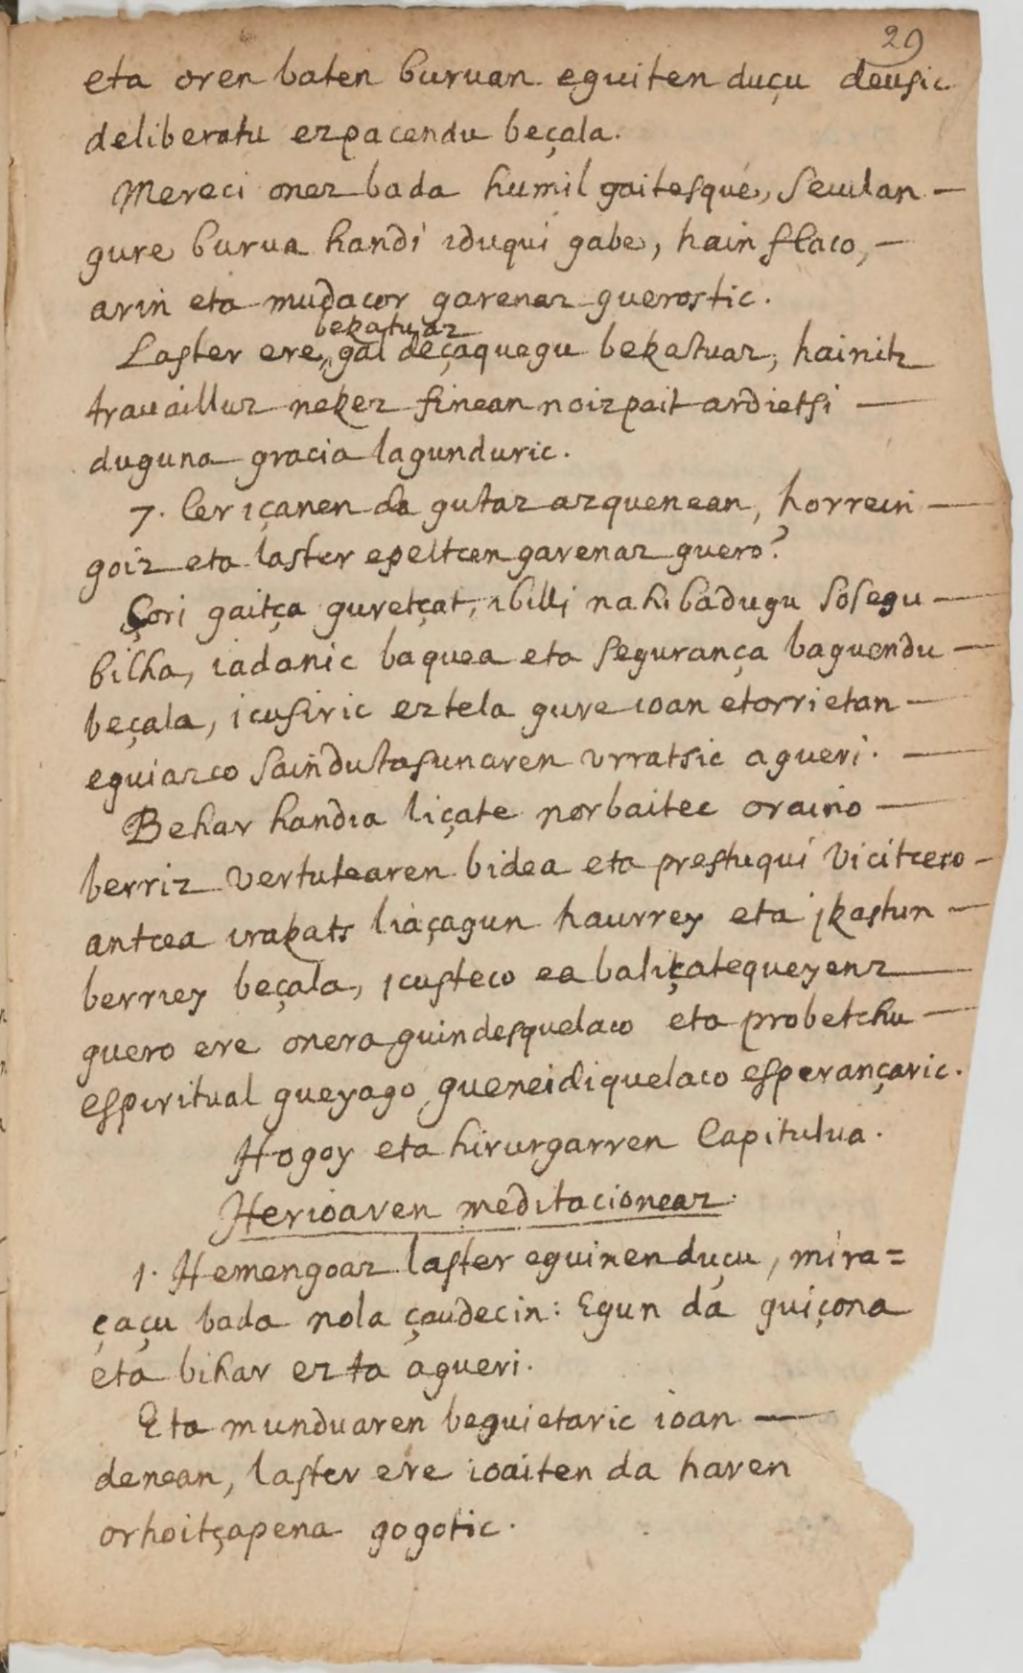 29
eta oren baten buruan eguiten duçu deusic
deliberatu ezpacendu beçala.
Mereci onez bada humil gaitesque, seculan —
gure burua handi iduqui gabe, hain flaco, —
arin eta mudacor garenaz guerostic.
bekatuaz
Laster ere, gal deçaquegu bekatuaz, hainitz
travailluz nekez finean noizpait ardietsi —
duguna gracia lagunduric.
7. Cer içanen da gutaz azquenean, horrein —
goiz eta laster epeltcen garenaz guero?
Çori gaitça guretçat, ibilli nahi badugu sosegu —
bilha, iadanic baquea eta segurança baguendu —
beçala, icusiric eztela gure ioan etorrietan —
eguiazco saindutasunaren urratsic agueri. —
Behar handia liçate norbaitec oraino —
berriz vertutearen bidea eta prestuqui vicitceco —
antcea irakats liaçagun haurrey eta ikastun —
berriey beçala, icusteco ea baliçatequeyenz —
guero ere onera guindesquelaco eta probetchu —
espiritual gueyago gueneidiquelaco esperançaric.
Hogoy eta hirurgarren Capitulua.
Herioaren meditacioneaz.
1. Hemengoaz laster eguinen duçu, mira=
çaçu bada nola çaudecin: Egun da guiçona
eta bihar ez ta agueri.
Eta munduaren beguietaric ioan —
denean, laster ere ioaiten da haren
orhoitçapena gogotic.